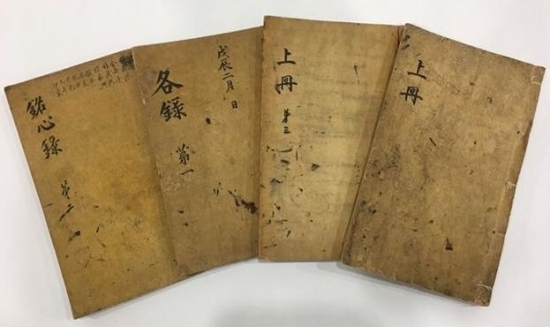 銘心錄
第二
戊辰二月日
各錄
第一
上冊
第三
上冊